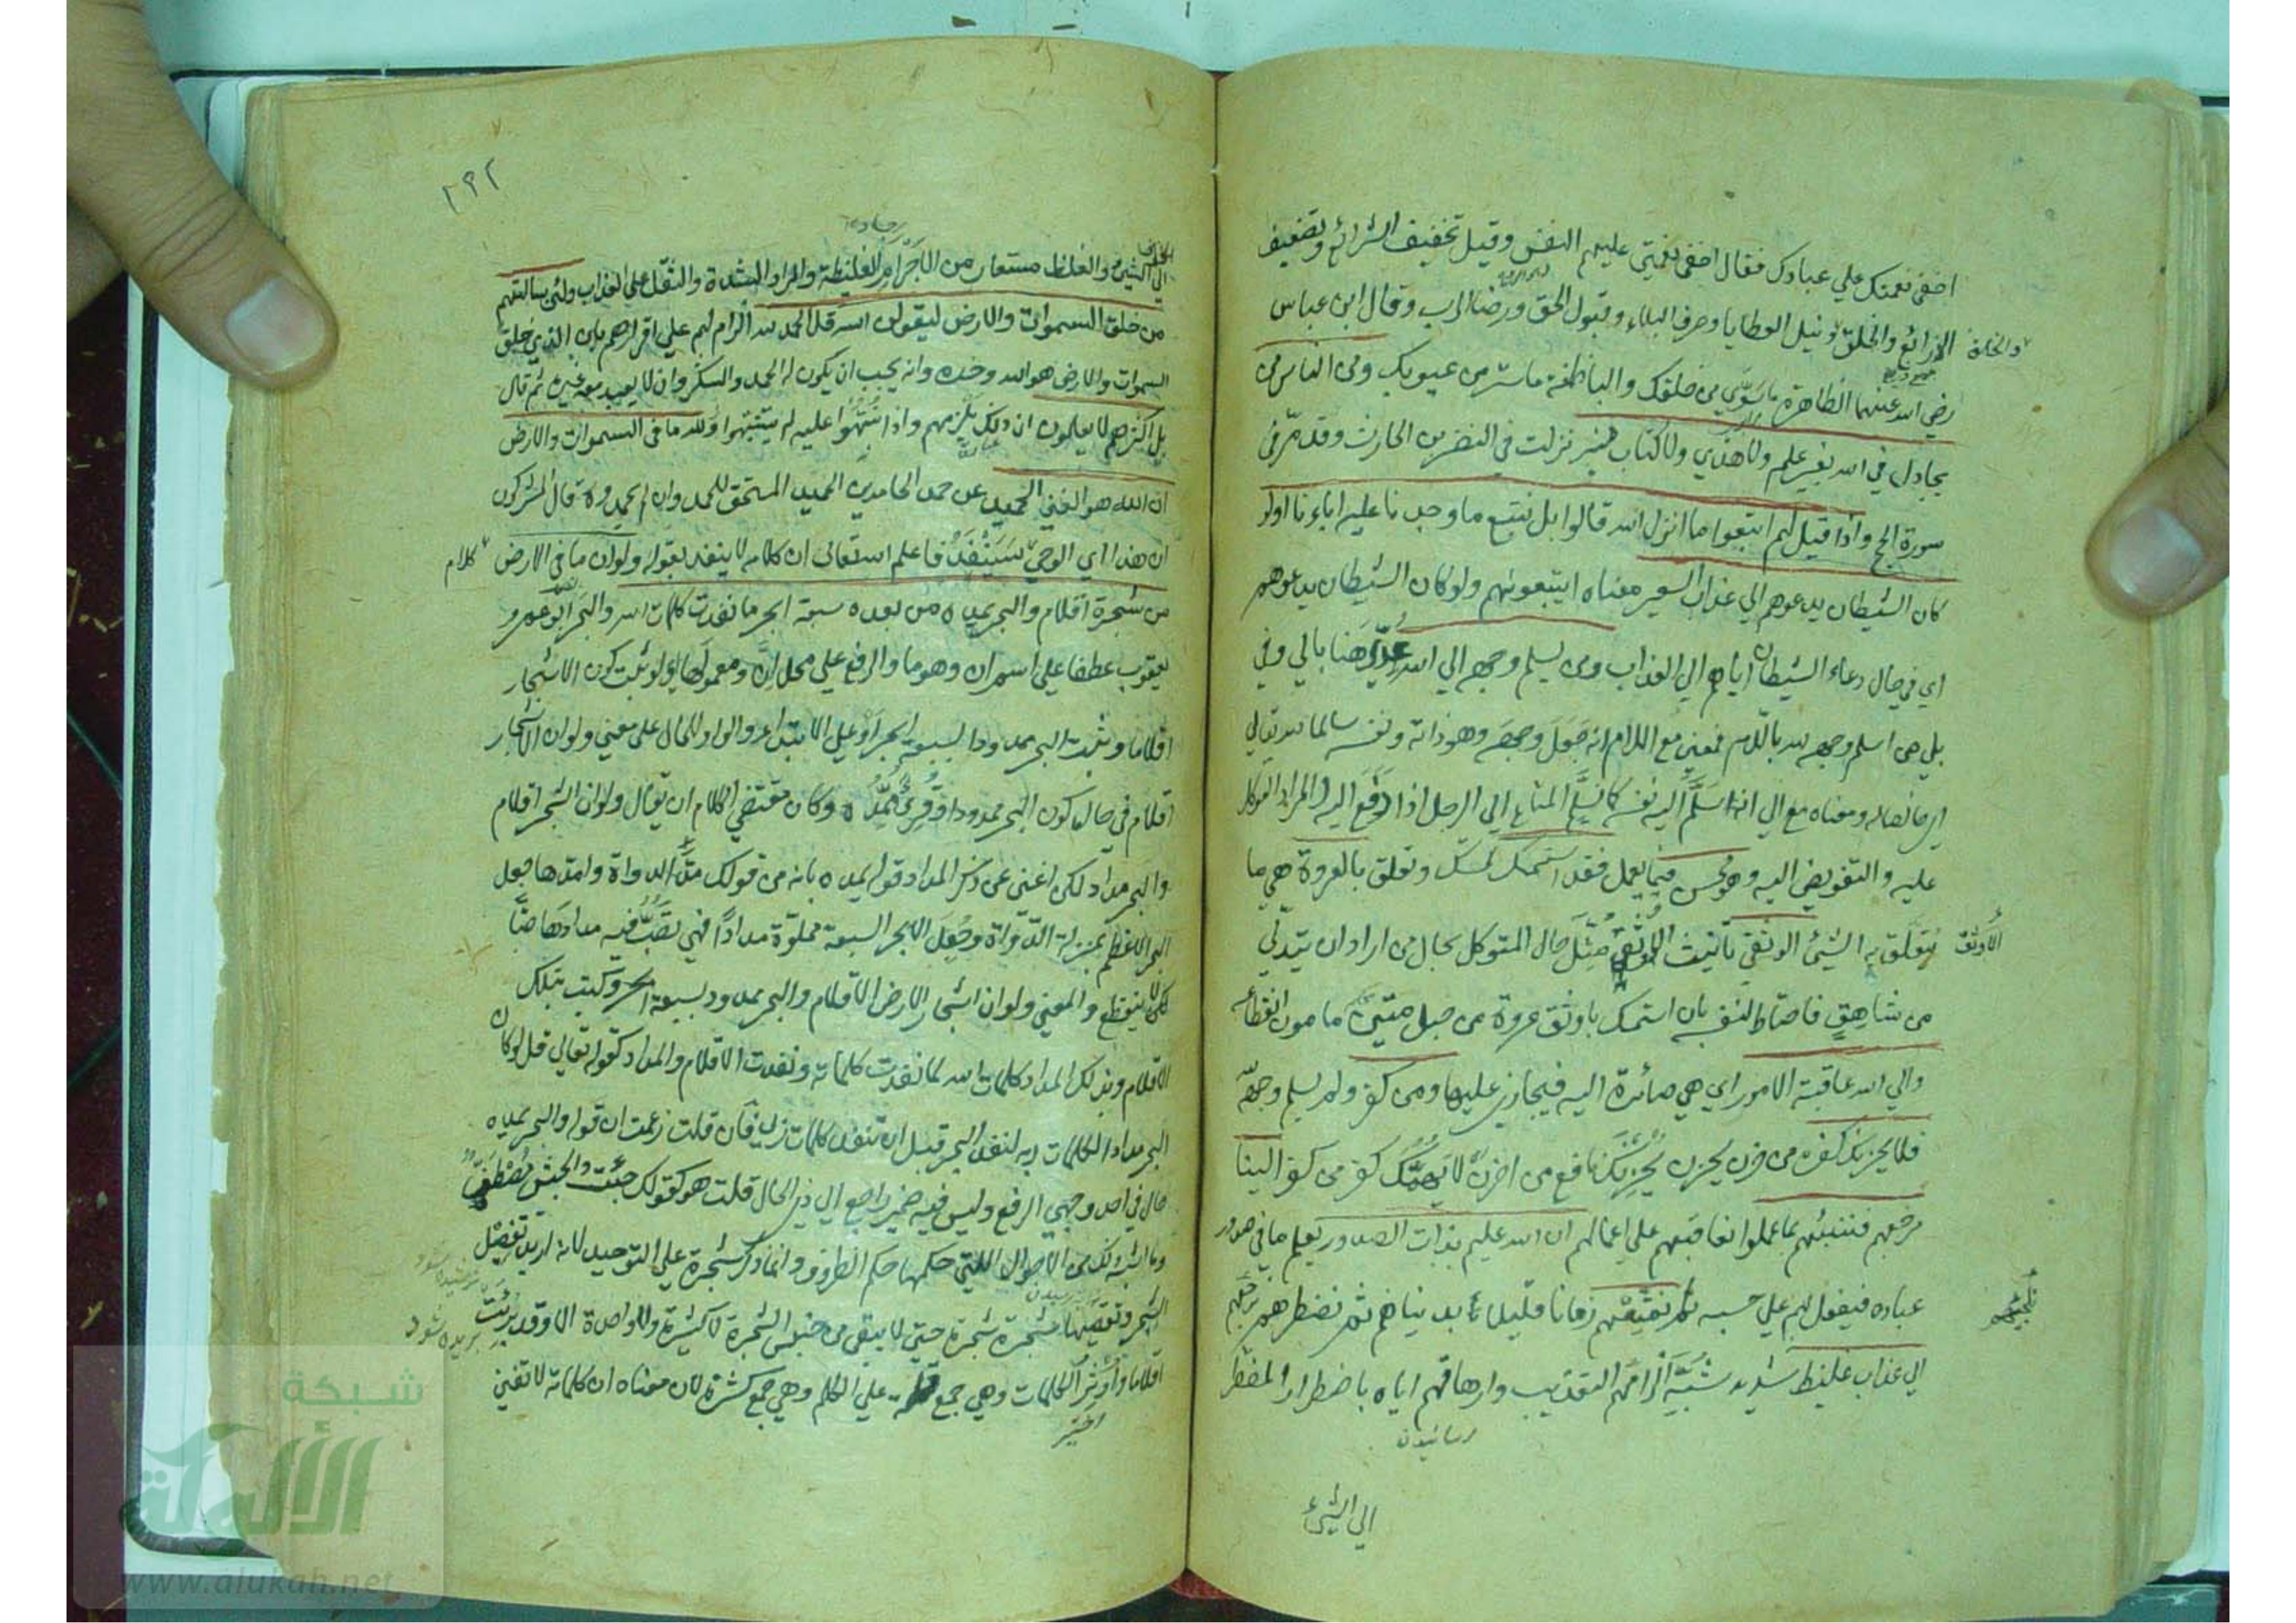 اخفى نعمتك على عبادك فقال اخفى نعمتي عليهم النفس وقيل تخفيف الشرائع وتضعيف
الذرائع والخلق ونيل العطايا وصرف البلاء وقبول الخلق ورضا الرب وقال ابن عباس
والخلق
رضي الله عنهما الظاهرة ما سوي من خلقك والباطنة ما ستر من عيوبك ومن الناس من
يجادل في الله بغير علم ولا هدي ولا كتاب منير نزلت في النضر بن الحارث وقد مر في
سورة الحج واذا قيل لهم اتبعوا ما انزل الله قالوا بل نتبع ما وجدنا عليه اباءنا اولو
كان الشيطان يدعوهم الي عذاب السعير معناه ايتبعونهم ولو كان الشيطان يدعوهم
اي في حال دعاء الشيطان اياهم الي العذاب ومن يسلم وجهه الي الله عدي هنا بالي وفي
بلي من اسلم وجهه لله باللام فمعني مع اللام انه جعل وجهه وهو ذاته ونفسه سالما لله تعالي
اي خالصا له ومعناه مع الي انه سلم اليه نفسه كما يسلم المتاع الي الرجل اذا دفع اليه والمراد التوكل
عليه والتفويض اليه وهو محسن فيما يعمل فقد استمسك تمسك وتعلق بالعروة هي ما
يتعلق به الشيئ الوثقي تانيث الاوثق مثل حال المتوكل بحال من اراد ان يتدلي
الاوثق
من شاهق فاحتاط لنفسه بان استمسك باوثق عروة من حبل متين مامون انقطاعه
والي الله عاقبة الامور اي هي صائرة اليه فيجازي عليها ومن كفر ولم يسلم وجهه
فلا يحزنك كفره من حزن يحزن يحزنك نافع من احزن لا يهمنك كفر من كفر الينا
مرجعهم فننبئهم بما عملوا نعاقبهم علي اعمالهم ان الله عليم بذات الصدور يعلم ما في صدور
عباده فيفعل بهم علي حسبه نمتعهم زمانا قليلا بدنياهم ثم نضطرهم
الي عذاب غليظ شديد شبه الزامهم التعذيب وارهاقهم اياه باضطرار المضطر
رسانيدن
الي الشيئ
١٩٢
الي الشيئ والغلظ مستعار من الاجرام الغليظة والمراد الشدة والثقل علي العذاب ولئن سالتهم
من خلق السموات والارض ليقولن الله قل الحمد لله الزام لهم علي اقرارهم بان الذي خلق
السموات والارض هو الله وحده وانه يجب ان يكون له الحمد والشكر وان لا يعبد معه غيره ثم قال
بل اكثرهم لا يعلمون ان ذلك يلزمهم واذا نبهوا عليه لم يتنبهوا لله ما في السموات والارض
ان الله هو الغني الحميد عن حمد الحامدين الحميد المستحق للحمد وان لم يحمدوه قال المشركون
ان هذا اي الوحي سينفد فاعلم الله تعالي ان كلامه لا ينفد بقوله ولو ان ما في الارض
كلام
من شجرة اقلام والبحر يمده من بعده سبعة ابحر ما نفدت كلمات الله والبحر ابو عمرو
يعقوب عطفا علي اسم ان وهو ما والرفع علي محل ان ومعمولها اي لو ثبت كون الاشجار
اقلاما وثبت البحر ممدودا بسبعة ابحر او علي الابتداء والواو للحال علي معني ولو ان الاشجار
اقلام في حال كون البحر ممدودا وقرئ يمده وكان مقتضي الكلام ان يقال ولو ان الشجر اقلام
والبحر مداد لكن اغني عن ذكر المداد قوله يمده بانه من قولك مد الدواة وامدها جعل
البحر الاعظم بمنزلة الدواة وجعل الابحر السبعة مملوة مدادا فهي تصب فيه مدادها صبا
لا ينقطع والمعني ولو ان اشجار الارض الاقلام والبحر ممدود بسبعة ابحر وكتبت بتلك
الاقلام وبذلك المداد كلمات الله لما نفدت كلماته ونفدت الاقلام والمداد كقوله تعالي قل لو كان
البحر مدادا لكلمات ربي لنفد البحر قبل ان تنفد كلمات ربي فان قلت زعمت ان قوله والبحر يمده
حال في احد وجهي الرفع وليس فيه ضمير راجع الي ذي الحال قلت هو كقولك جئت والجيش مصطف
وما اشبه ذلك من الاحوال التي حكمها حكم الظروف وانما ذكر شجرة علي التوحيد لانه اريد تفصيل
الشجر وتقصيها شجرة شجرة حتي لا يبقي من جنس الشجرة لا كثيرة ولا واحدة الا وقد بريت
بريده شود
اقلاما واوثر الكلمات وهي جمع قلة علي الكلم وهي جمع كثرة لان معناه ان كلماته لا تفني
اختير
شبكة
الألوكة
www.alukah.net